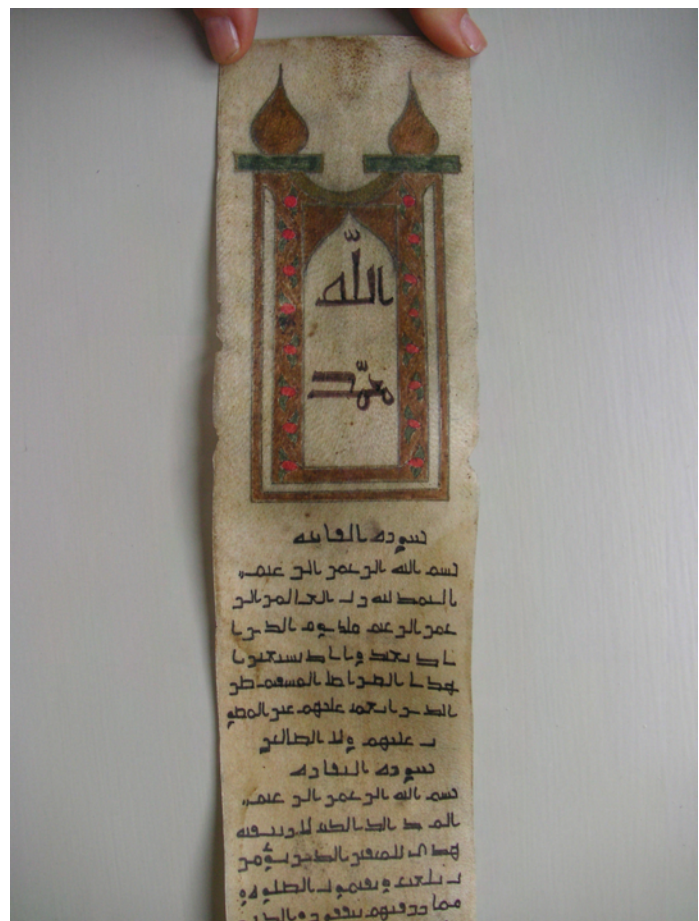 اللّه
محمّد
سوره الفاتحه
بسم الله الرحمن الرحيم
الحمد لله رب العالمين الر
حمن الرحيم ملك يوم الدين ا
ياك نعبد و اياك نستعين ا
هدنا الصراط المستقيم صرط
الذين انعمت عليهم غير المغضو
ب عليهم ولا الضالين
سوره البقاره
بسم الله الرحمن الرحيم
الم ذلك الكتب لا ريب فيه
هدى للمتقين الذين يؤمنو
ن بالغيب و يقيمون الصلوه و
مما رزقنهم ينفقون والذين